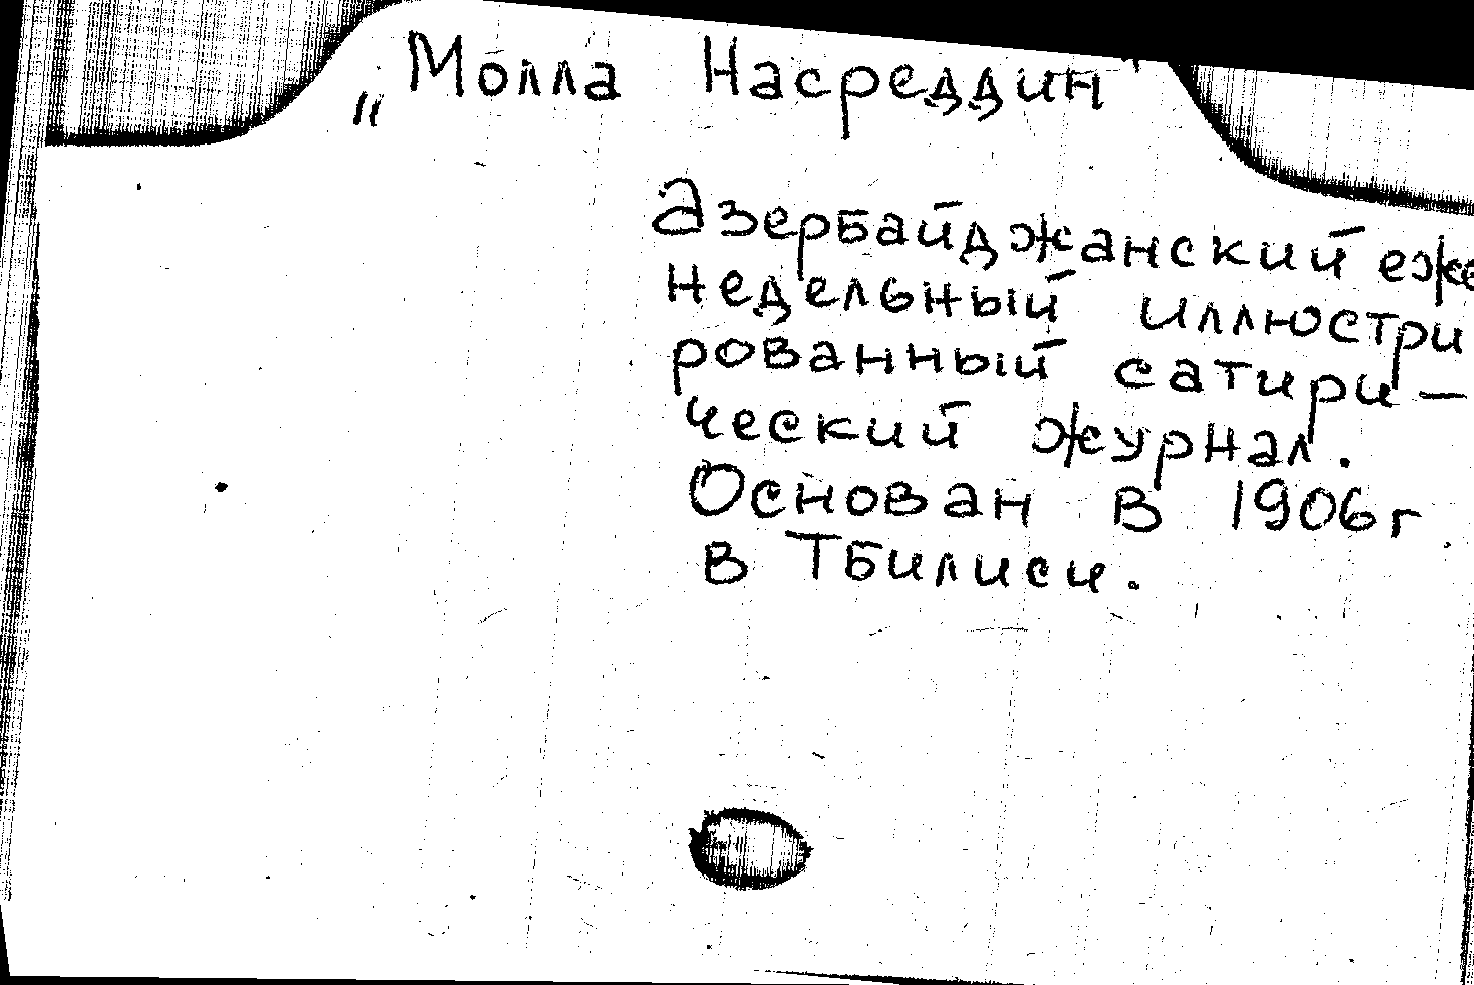 „Молла Насреддин"
Азербайджанский еже
недельный иллюстри
рованный сатири-
ческий журнал.
Основан в 1906г.
в Тбилиси.